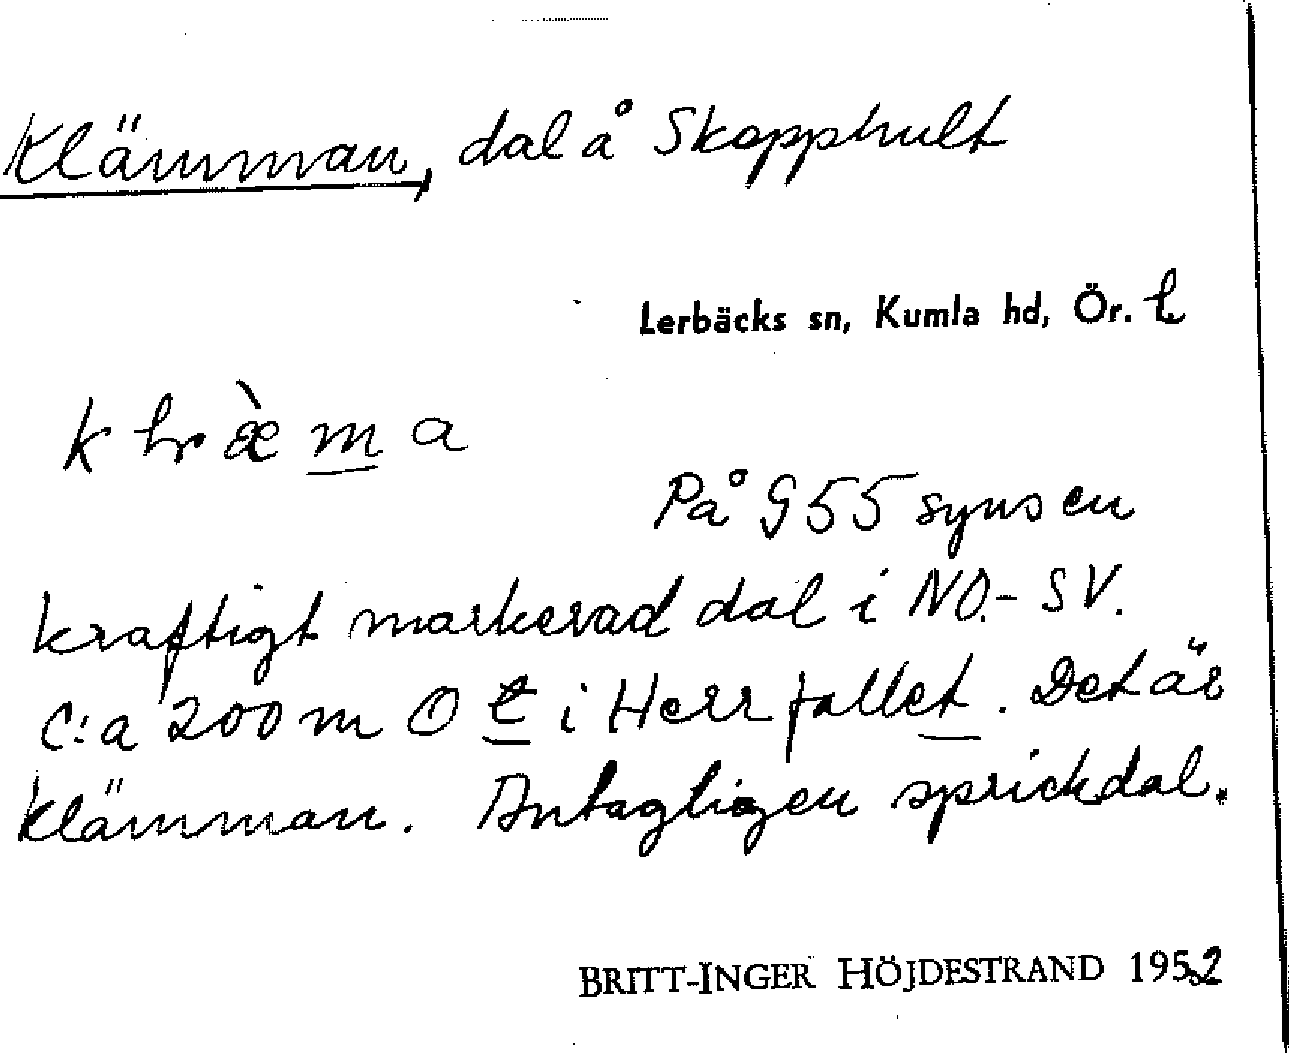 Klämman, dal å Skopphult
Lerbäcks sn, Kumla hd, Ör. l
klræ̀ma
På G55 syns en
kraftigt markerad dal i NO.-SV.
C:a 200 m O t i Herrfallet. Det är
Klämman. Antagligen sprickdal.
BRITT-INGER HÖJDESTRAND 1952